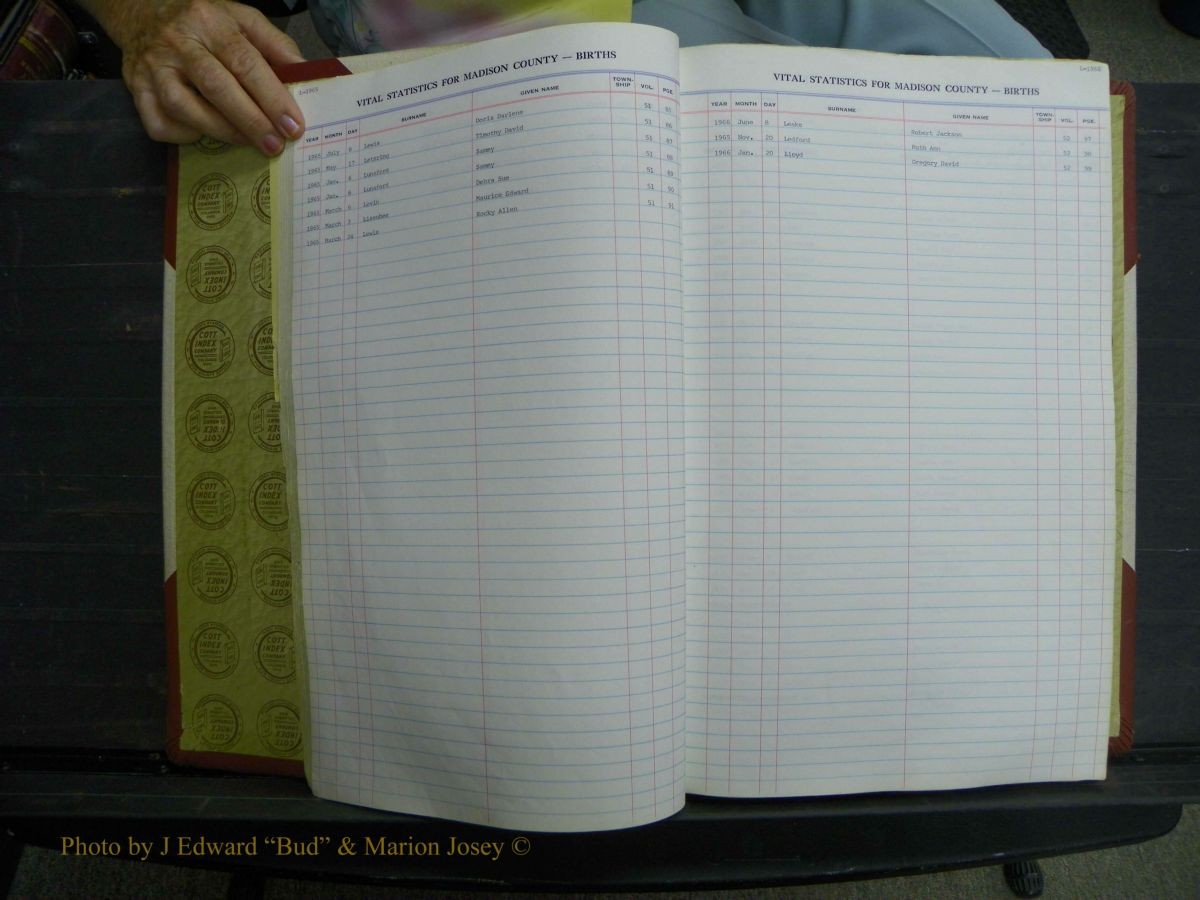 L-1965
VITAL STATISTICS FOR MADISON COUNTY — BIRTHS
YEAR MONTH DAY SURNAME GIVEN NAME TOWN-SHIP VOL. PGE.
1965 July 9 Lewis Doris Darlene 51 85
1965 May 17 Letering Timothy David 51 86
1965 Jan. 8 Lunsford Sammy 51 87
1965 Jan. 8 Lunsford Sammy 51 88
1965 March 6 Levin Debra Sue 51 89
1965 March 3 Lisenbee Maurice Edward 51 90
1965 March 24 Lewis Rocky Allen 51 91
L-1966
VITAL STATISTICS FOR MADISON COUNTY — BIRTHS
YEAR MONTH DAY SURNAME GIVEN NAME TOWN-SHIP VOL. PGE.
1966 June 8 Leake Robert Jackson 52 97
1965 Nov. 20 Ledford Ruth Ann 52 98
1966 Jan. 20 Lloyd Gregory David 52 99
COTT INDEX COMPANY
Photo by J Edward “Bud” & Marion Josey ©